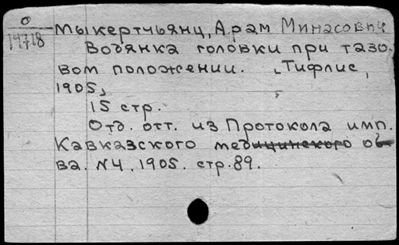 О
14718
Мыкертчьянц, Арам Минасович
Водянка головки при тазо-
вом положении. [Тифлис,
1905,
15 стр.
Отд. отт. из Протокола имп.
Кавказского медицинского об-
ва. N4, 1905. стр. 89.